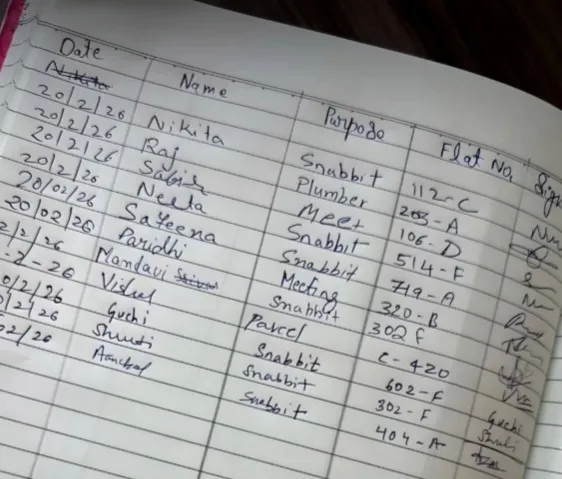 Date Name Purpose Flat No. Sign
Nikita
20/2/26 Nikita Snabbit 112-C
20/2/26 Raj Plumber 203-A
20/2/26 Sabir Meet 106-D
20/2/26 Neeta Snabbit 514-F
20/02/26 Sayeena Snabbit 719-A
20/02/26 Paridhi Meeting 320-B
2/2/26 Mandavi Snabbit 302 F
-2-26 Vishal Parcel C-420
0/2/26 Guchi Snabbit 602-F Guchi
0/2/26 Shruti Snabbit 302-F Shruti
02/26 Aanchal Snabbit 404-A